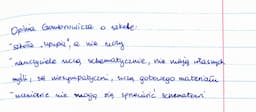 Opinia Gombrowicza o szkole:
- szkoła "upupia", a nie uczy
- nauczyciele uczą schematycznie, nie mają własnych
myśli, są niesympatyczni, uczą gotowego materiału
- uczniowie nie mogą się sprzeciwić schematowi